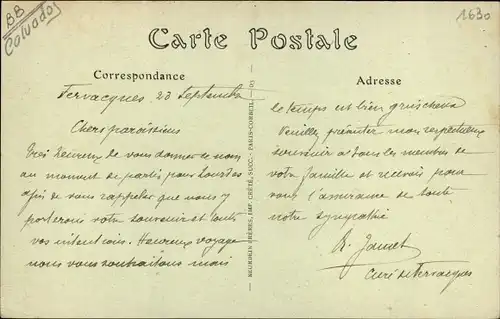 BB
Calvados
1630
Carte Postale
Correspondance
Adresse
Fervacques 23 Septembre
Chers paroissiens
Très heureux de vous donner de nos
au moment de partir pour Lourdes
afin de vous rappeler que nous y
porterons votre souvenir et toutes
vos intentions. Heureux voyage
nous vous souhaitons mais
le temps est bien grincheux
Veuillez présenter mon respectueux
souvenir à tous les membres de
votre famille et recevoir pour
vous l'assurance de toute
notre sympathie
Curé de Fervacques
NEURDEIN FRÈRES, IMP. CRÉTÉ, SUCC. - PARIS-CORBEIL